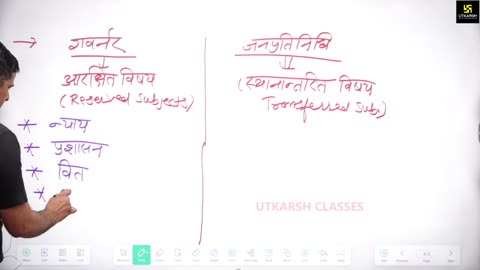 UTKARSH
→ गवर्नर
आरक्षित विषय
(Reserved Subjects)
* न्याय
* प्रशासन
* वित
*
जनप्रतिनिधि
(स्थानान्तरित विषय
Transferred Sub.)
UTKARSH CLASSES